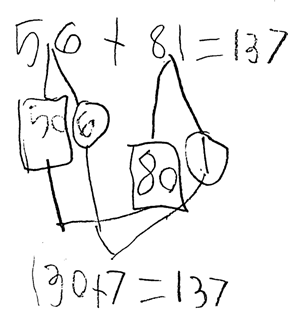 56 + 81 = 137
50 6
80 1
130 + 7 = 137